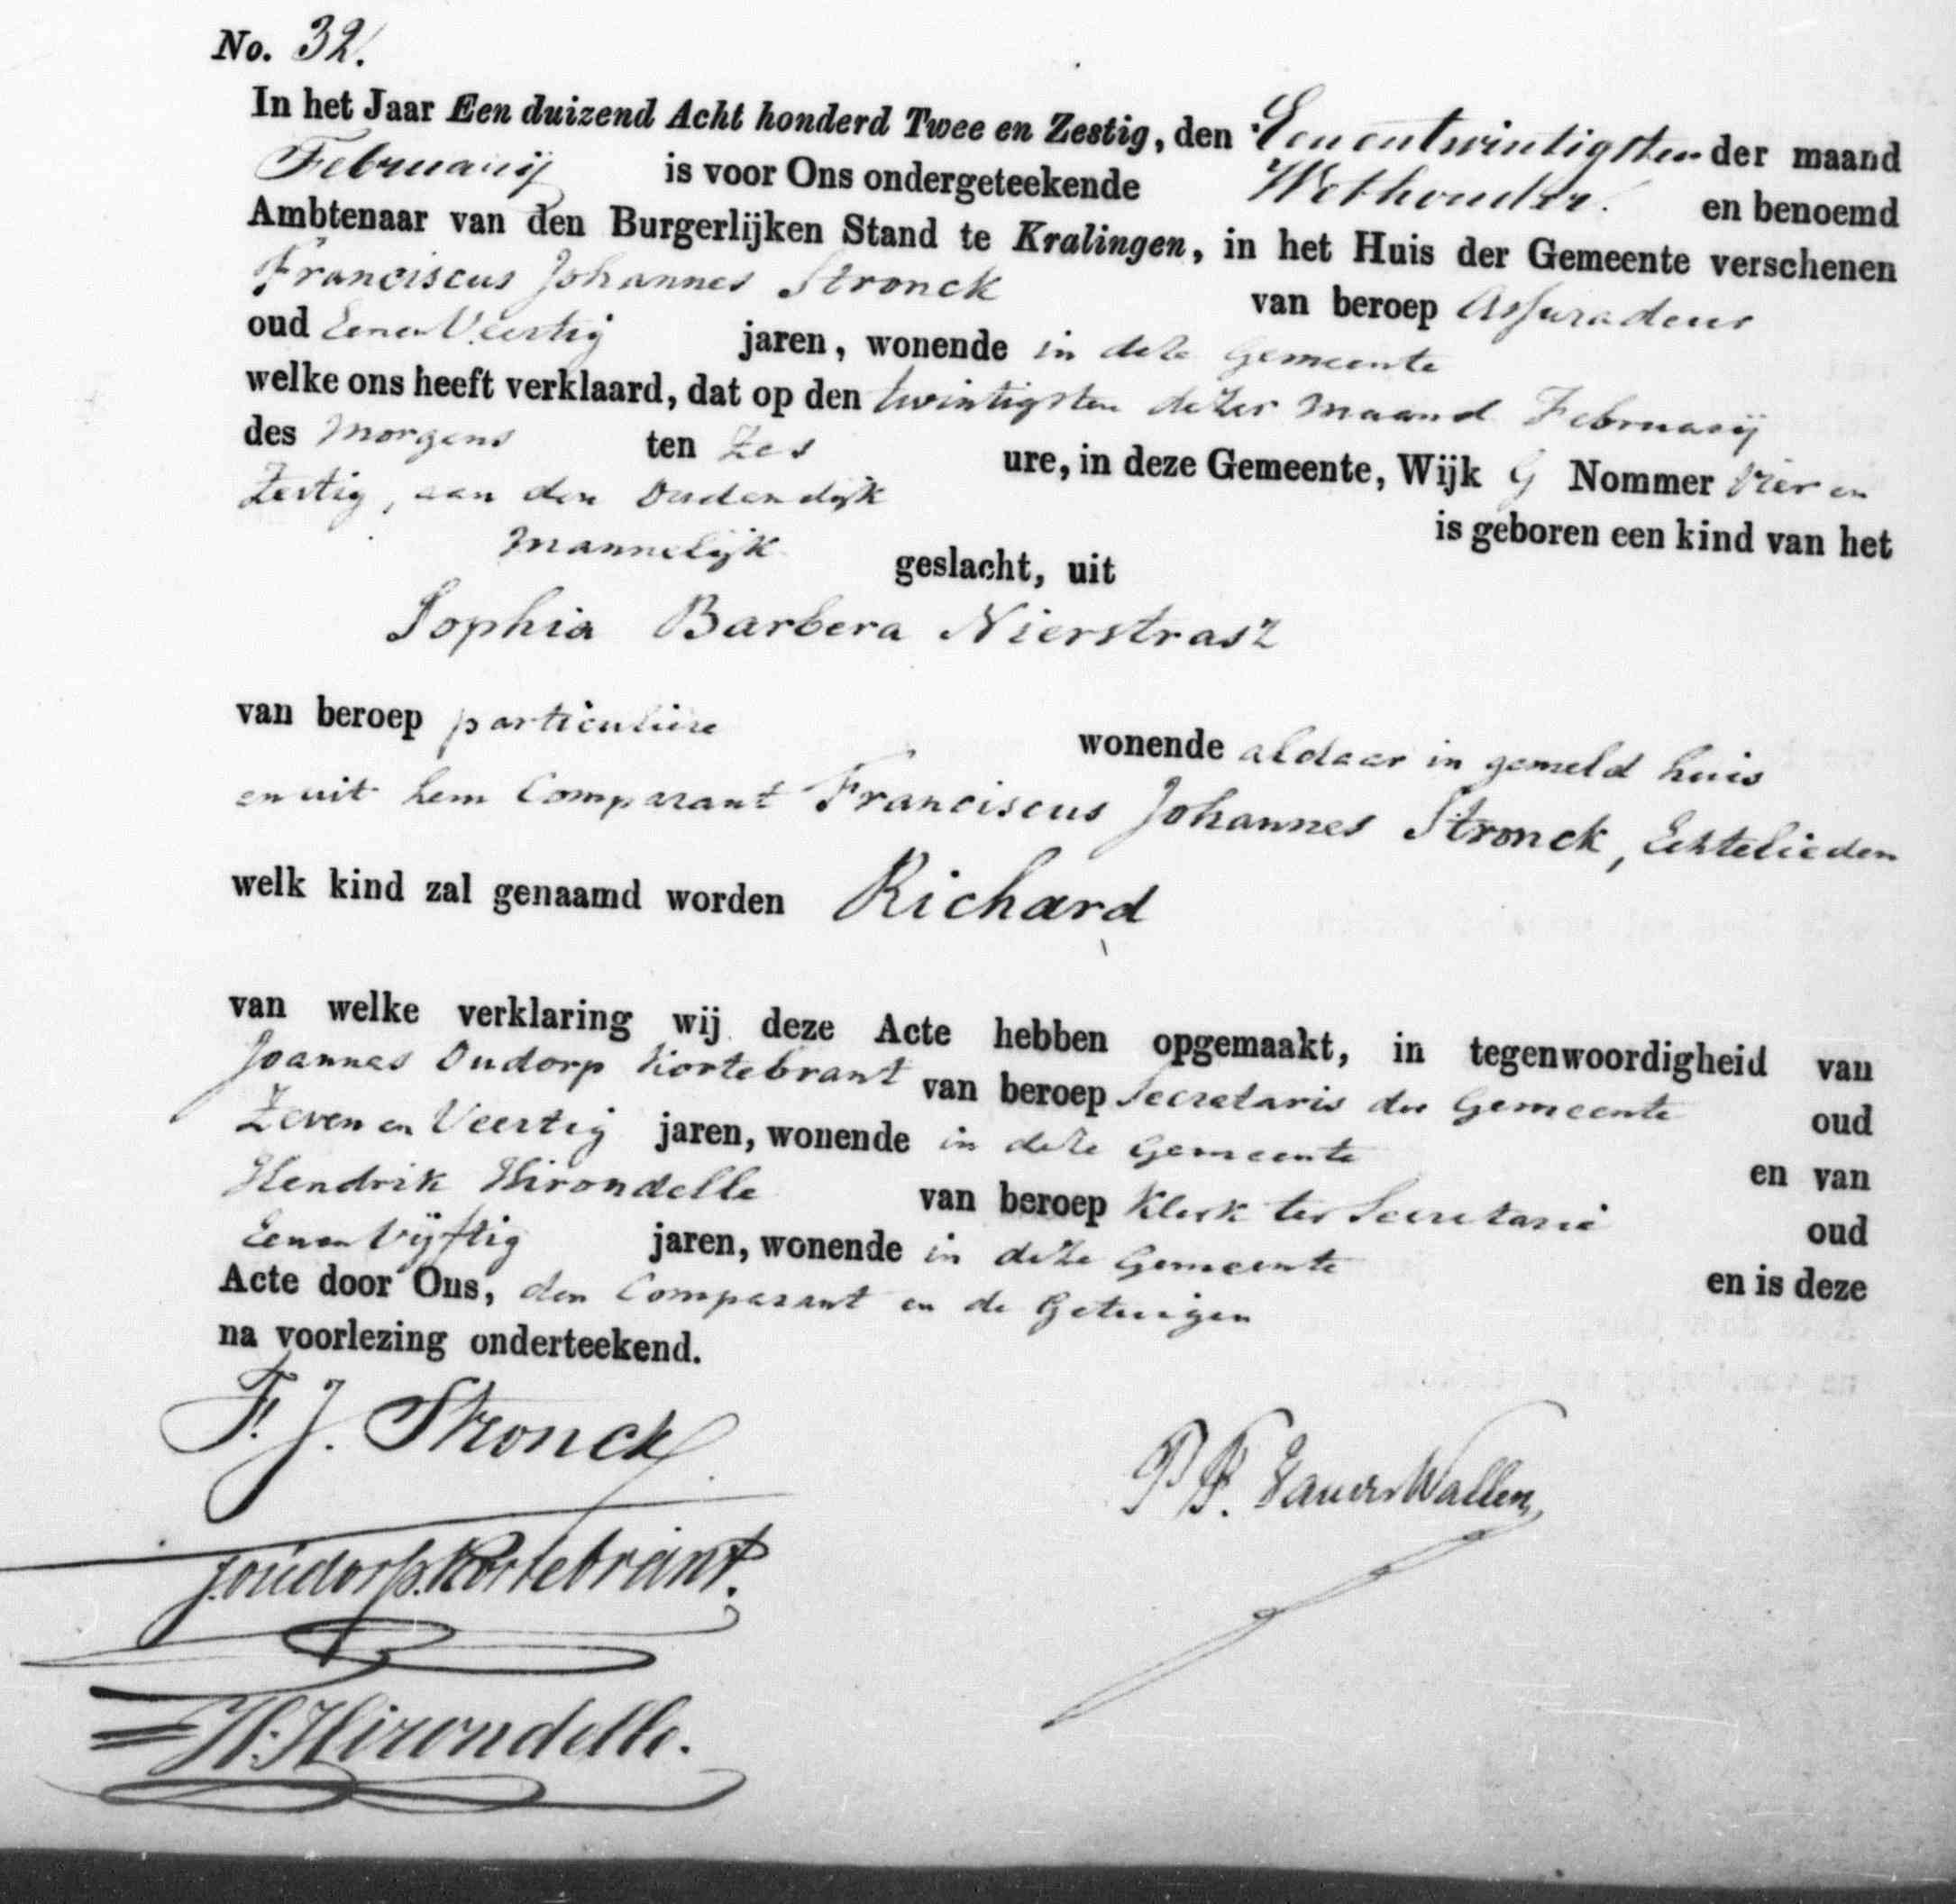 No. 32.
In het Jaar Een duizend Acht honderd Twee en Zestig, den Eenentwintigsten der maand
Februarij is voor Ons ondergeteekende Wethouder. en benoemd
Ambtenaar van den Burgerlijken Stand te Kralingen, in het Huis der Gemeente verschenen
Franciscus Johannes Stronck van beroep Assuradeur
oud Een en Veertig jaren, wonende in deze Gemeente
welke ons heeft verklaard, dat op den twintigsten dezer maand Februarij
des Morgens ten Zes ure, in deze Gemeente, Wijk G Nommer Vier en
Zestig, aan den Oudendijk is geboren een kind van het
Mannelijk geslacht, uit
Sophia Barbera Nierstrasz
van beroep particuliere wonende aldaar in gemeld huis
en uit hem Comparant Franciscus Johannes Stronck, Echtelieden
welk kind zal genaamd worden Richard
van welke verklaring wij deze Acte hebben opgemaakt, in tegenwoordigheid van
Joannes Oudorp Kortebrant van beroep Secretaris der Gemeente oud
Zeven en Veertig jaren, wonende in deze Gemeente en van
Hendrik Hirondelle van beroep Klerk ter Secretarie oud
Een en Vijftig jaren, wonende in deze Gemeente en is deze
Acte door Ons, den Comparant en de Getuigen
na voorlezing onderteekend.
F. J. Stronck
P F. Wallen
J. Oudorp. Kortebrant.
H. Hirondelle.